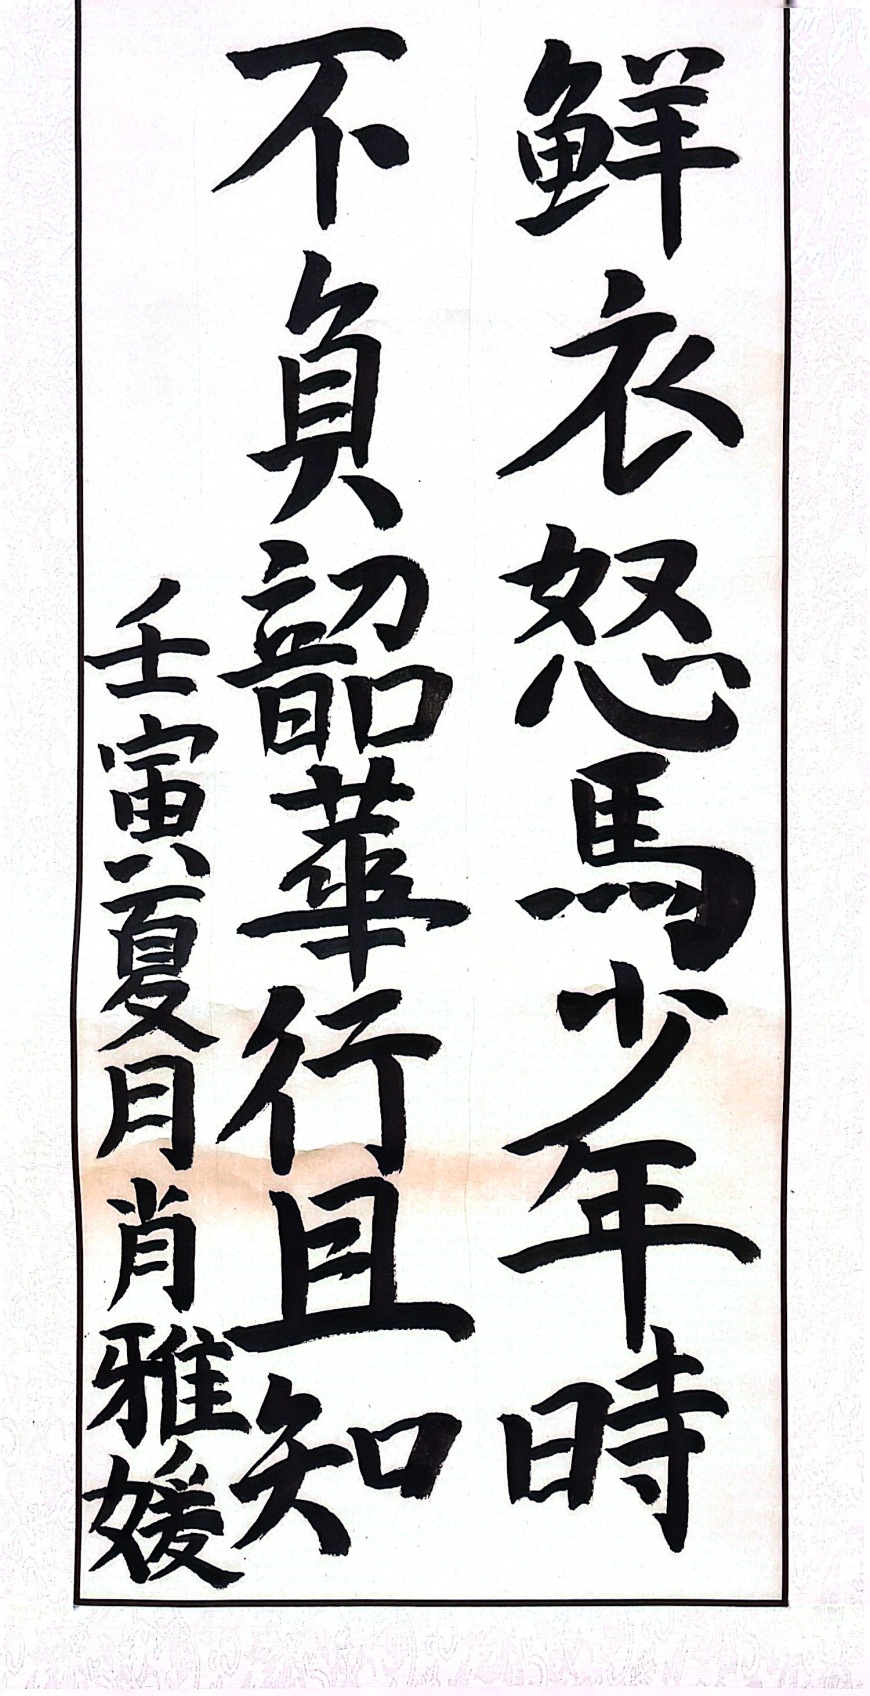 鮮衣怒馬少年時
不負韶華行且知
壬寅夏月肖雅媛